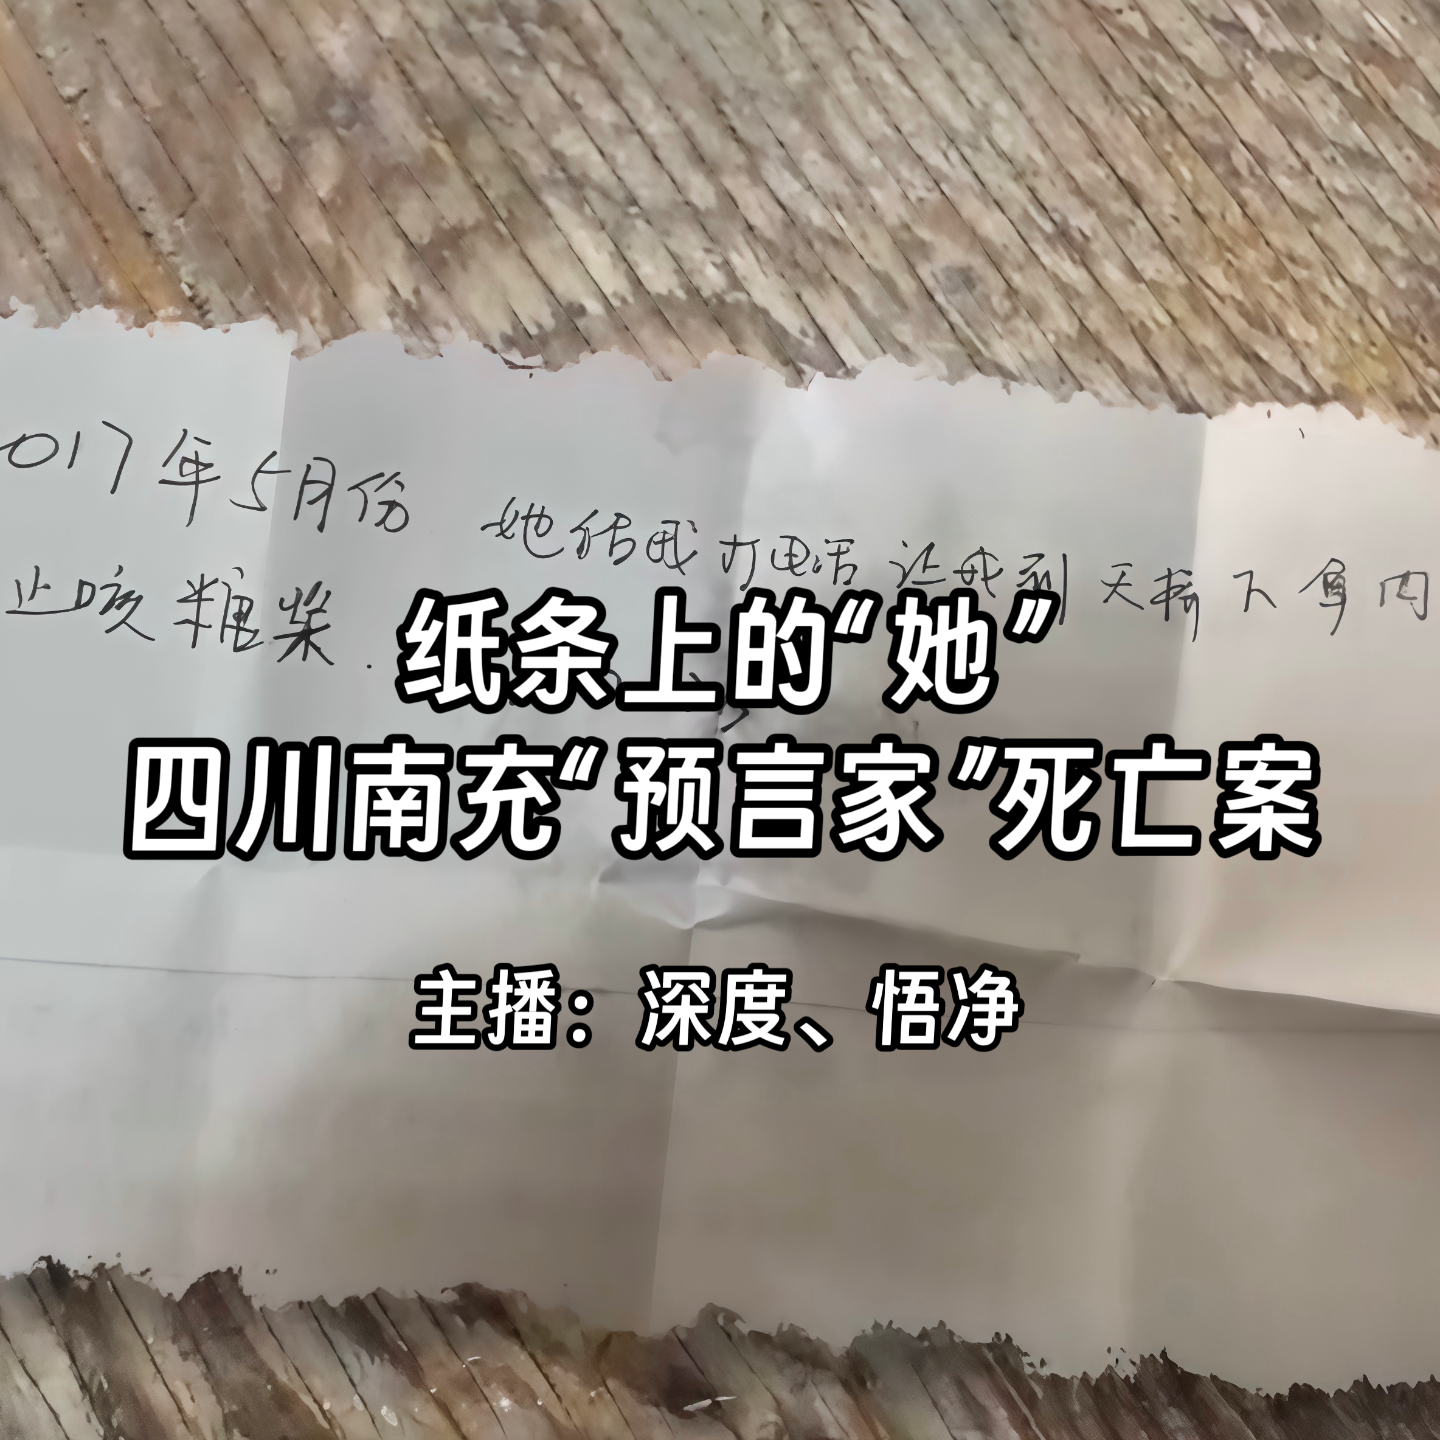 017年5月份 她给我打电话 让我到天桥下拿肉
止咳糖浆.
纸条上的“她”
四川南充“预言家”死亡案
主播：深度、悟净